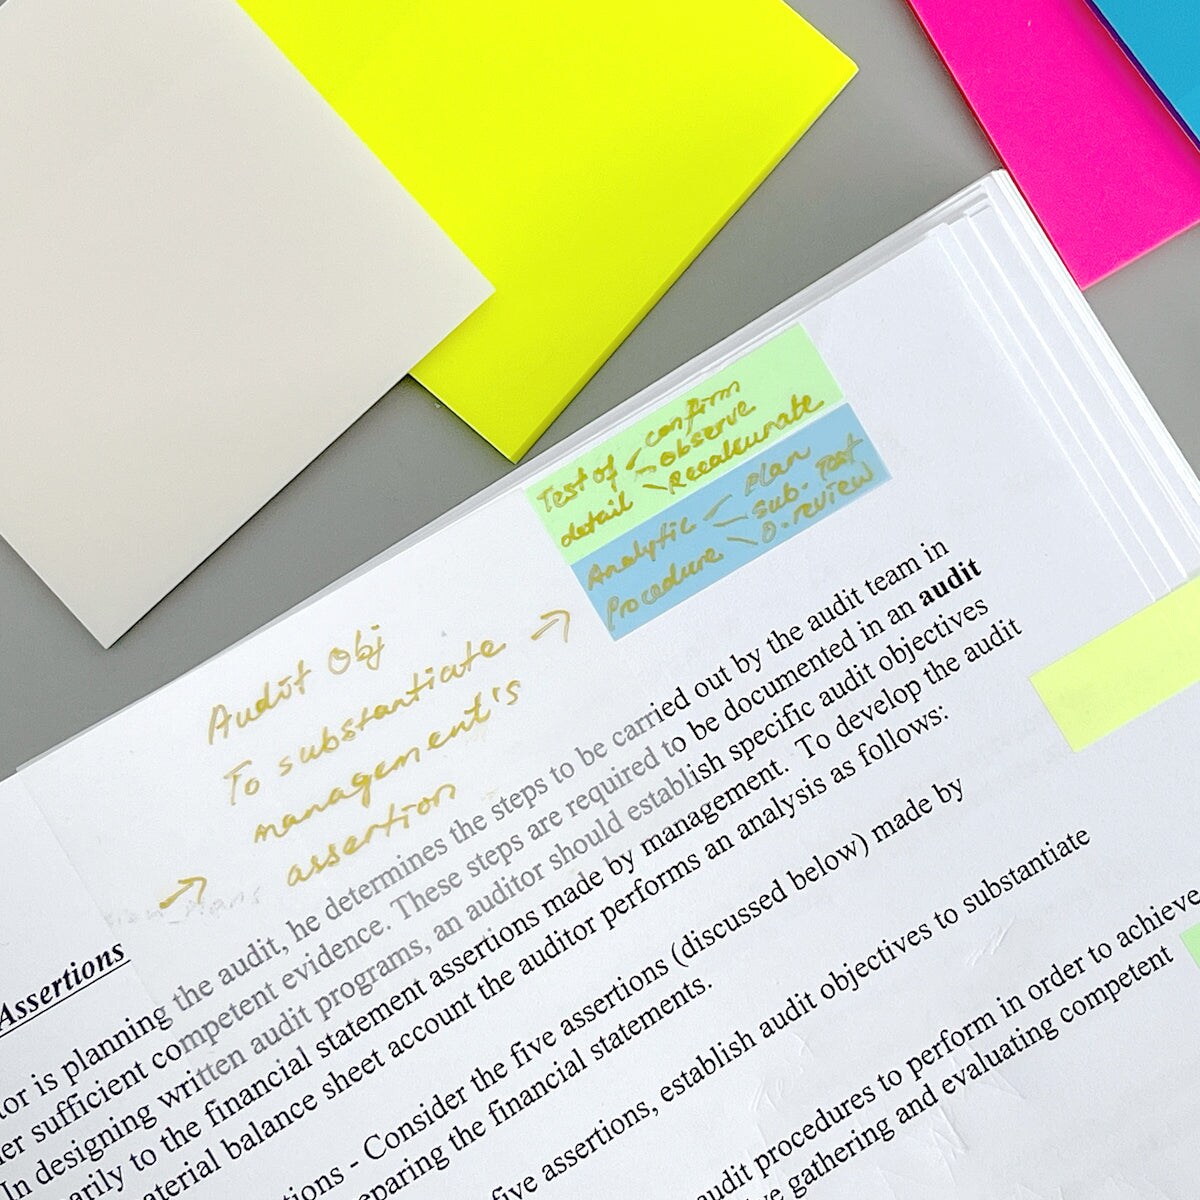 Test of confirm
observe
detail Recalcunate
Analytic Plan
sub-Test
Procedure O.review
Audit Obj
To substantiate
management's
assertion
Assertions
tor is planning the audit, he determines the steps to be carried out by the audit team in
er sufficient competent evidence. These steps are required to be documented in an audit
In designing written audit programs, an auditor should establish specific audit objectives
arily to the financial statement assertions made by management. To develop the audit
aterial balance sheet account the auditor performs an analysis as follows:
tions - Consider the five assertions (discussed below) made by
eparing the financial statements.
five assertions, establish audit objectives to substantiate
audit procedures to perform in order to achieve
ve gathering and evaluating competent